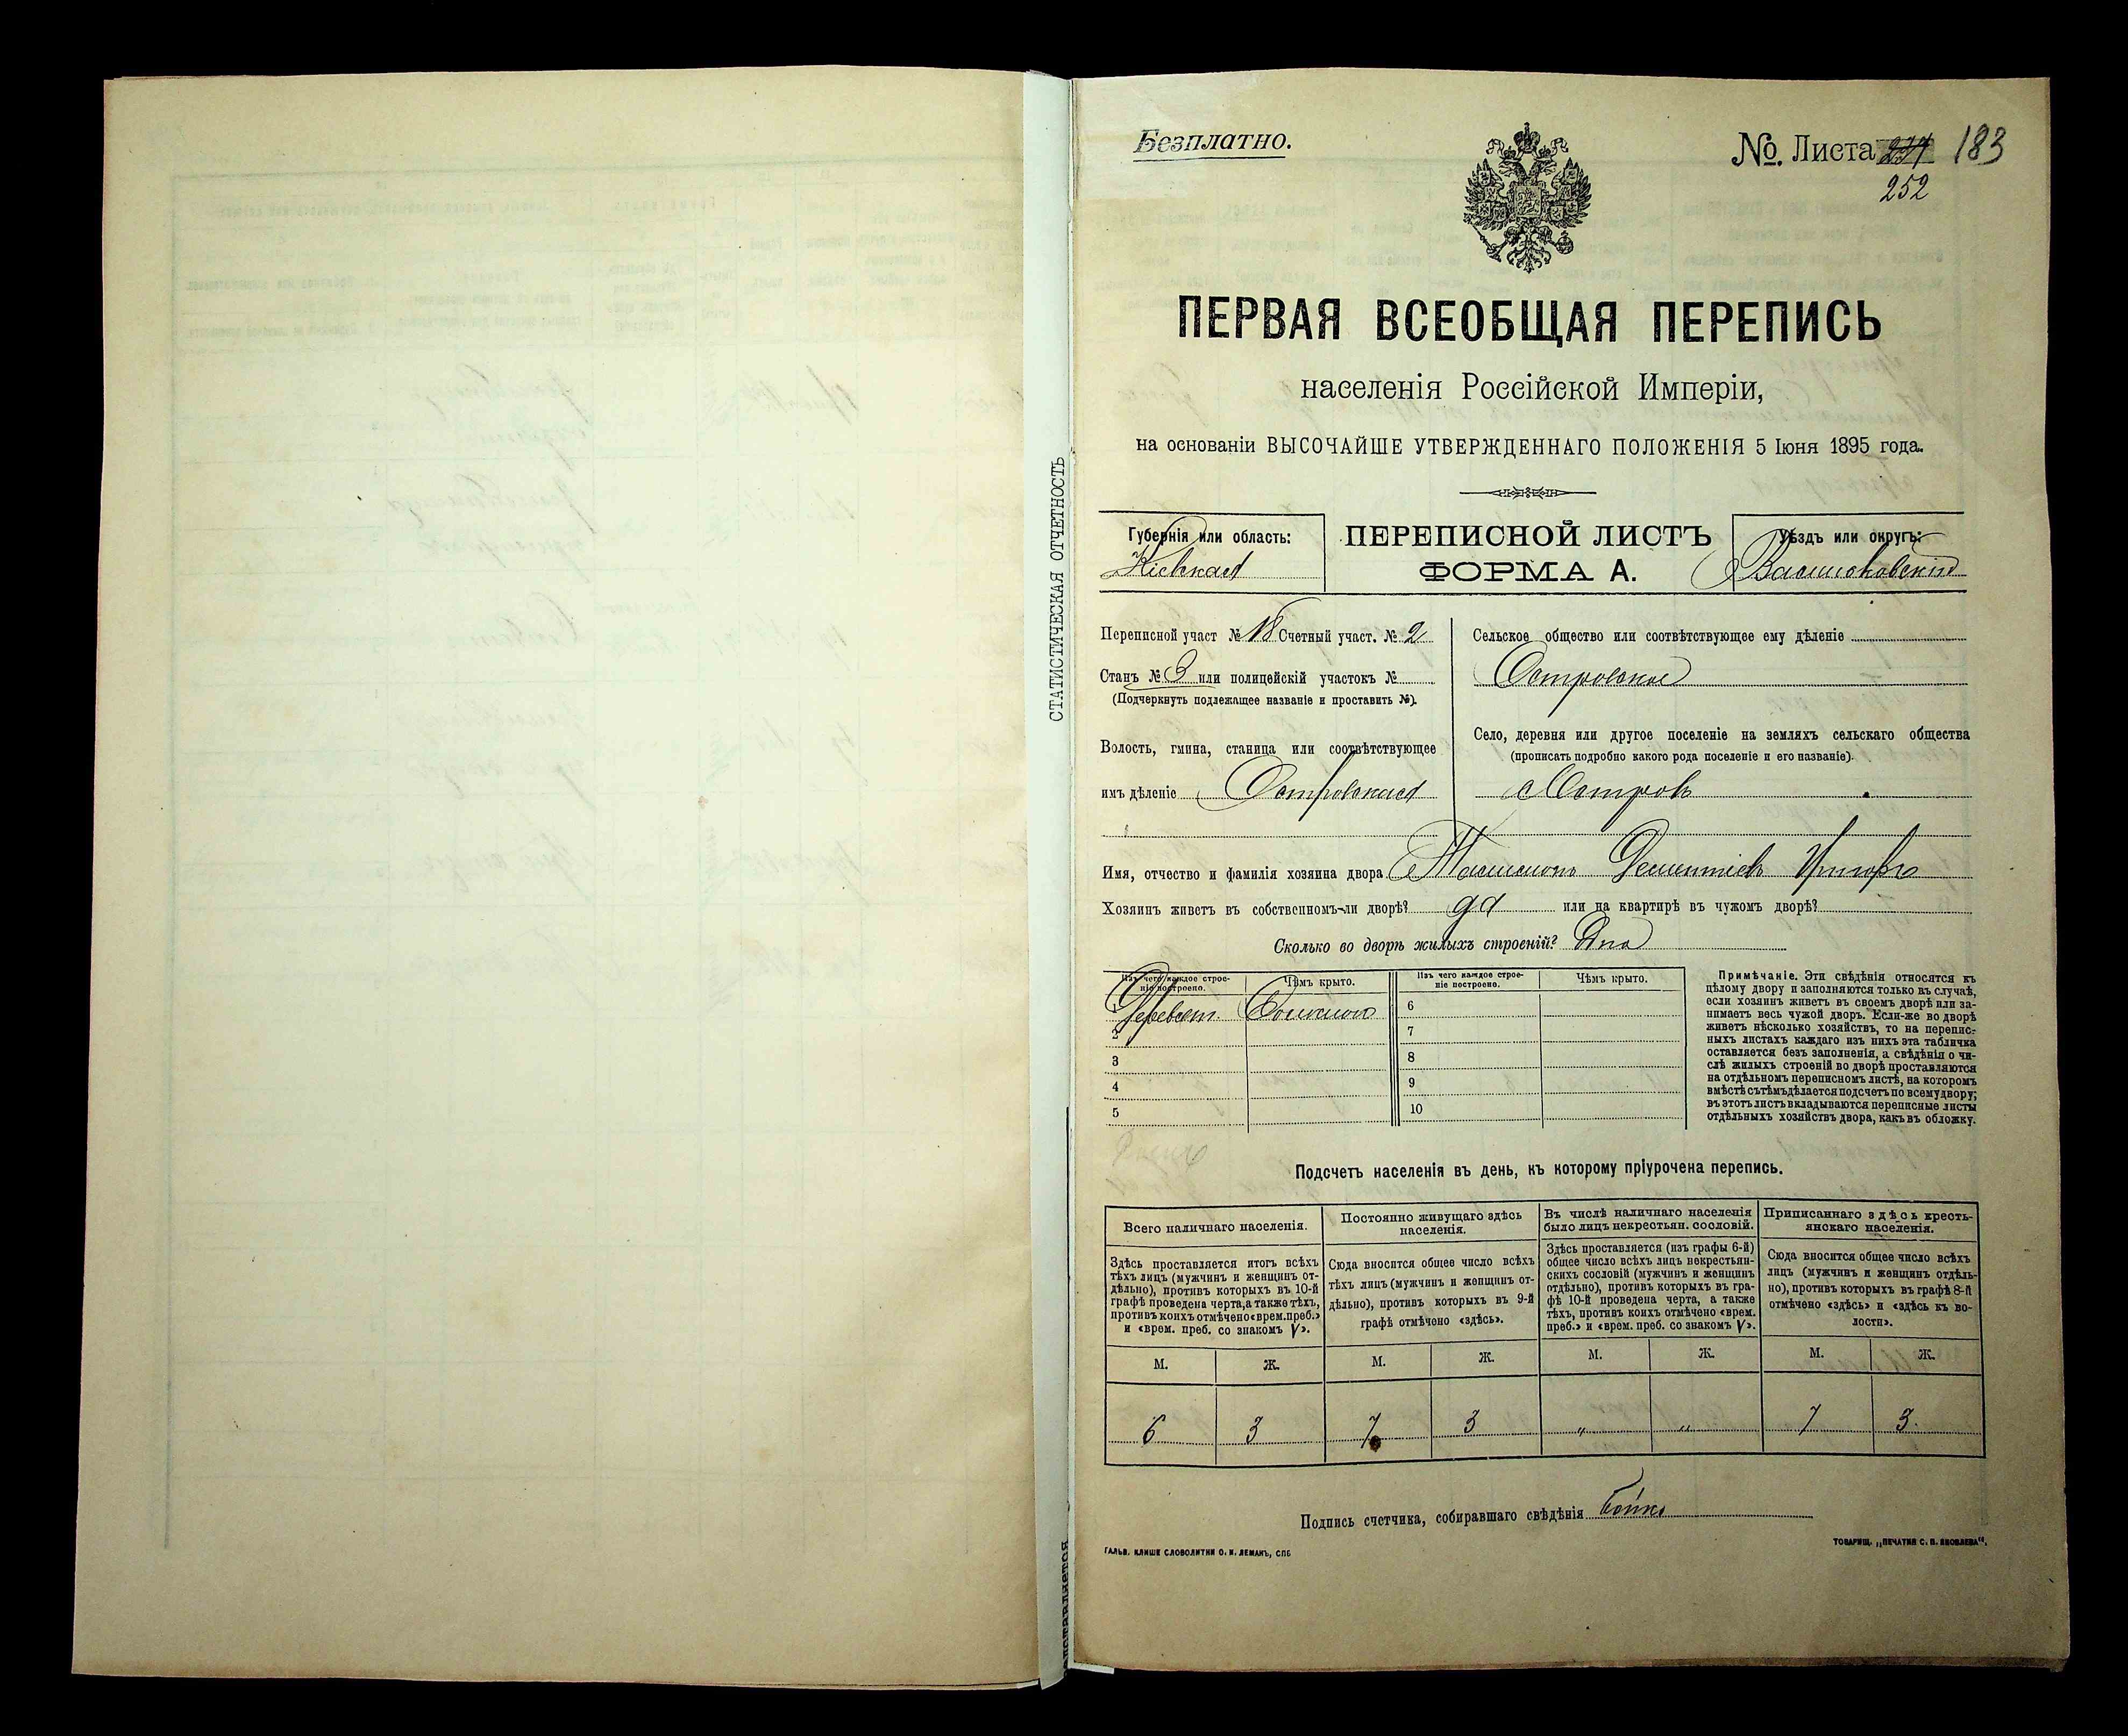 Безплатно.
№. Листа 183
252
ПЕРВАЯ ВСЕОБЩАЯ ПЕРЕПИСЬ
населенія Россійской Имперіи,
на основаніи ВЫСОЧАЙШЕ УТВЕРЖДЕННАГО ПОЛОЖЕНІЯ 5 Іюня 1895 года.
Губернія или область:
Кіевская
ПЕРЕПИСНОЙ ЛИСТЪ
ФОРМА А.
Уѣздъ или округъ:
Васильковскій
Переписной участ № 18 Счетный участ. № 2
Станъ № 3 или полицейскій участокъ №
(Подчеркнуть подлежащее названіе и проставить №).
Волость, гмина, станица или соотвѣтствующее
имъ дѣленіе Островская
Сельское общество или соотвѣтствующее ему дѣленіе
Островское
Село, деревня или другое поселеніе на земляхъ сельскаго общества
(прописать подробно какого рода поселеніе и его названіе).
с Островъ
Имя, отчество и фамилія хозяина двора
Хозяинъ живетъ въ собственномъ-ли дворѣ? да или на квартирѣ въ чужомъ дворѣ?
Сколько во дворѣ жилыхъ строеній?
Изъ чего каждое строе-
ніе построено.
Чѣмъ крыто.
Изъ чего каждое строе-
ніе построено.
Чѣмъ крыто.
1 Деревян. Соломою
2
3
4
5
6
7
8
9
10
Примѣчаніе. Эти свѣдѣнія относятся къ
цѣлому двору и заполняются только въ случаѣ,
если хозяинъ живетъ въ своемъ дворѣ или за-
нимаетъ весь чужой дворъ. Если-же во дворѣ
живетъ нѣсколько хозяйствъ, то на перепис-
ныхъ листахъ каждаго изъ нихъ эта табличка
оставляется безъ заполненія, а свѣдѣнія о чи-
слѣ жилыхъ строеній во дворѣ проставляются
на отдѣльномъ переписномъ листѣ, на которомъ
вмѣстѣ съ тѣмъ дѣлается подсчетъ по всему двору;
въ этотъ листъ вкладываются переписные листы
отдѣльныхъ хозяйствъ двора, какъ въ обложку.
Подсчетъ населенія въ день, къ которому пріурочена перепись.
Всего наличнаго населенія.
Здѣсь проставляется итогъ всѣхъ
тѣхъ лицъ (мужчинъ и женщинъ от-
дѣльно), противъ которыхъ въ 10-й
графѣ проведена черта, а также тѣхъ,
противъ коихъ отмѣчено «врем. преб.»
и «врем. преб. со знакомъ V».
Постоянно живущаго здѣсь
населенія.
Сюда вносится общее число всѣхъ
тѣхъ лицъ (мужчинъ и женщинъ от-
дѣльно), противъ которыхъ въ 9-й
графѣ отмѣчено «здѣсь».
Въ числѣ наличнаго населенія
было лицъ некрестьян. сословій.
Здѣсь проставляется (изъ графы 6-й)
общее число всѣхъ лицъ некрестьян-
скихъ сословій (мужчинъ и женщинъ
отдѣльно), противъ которыхъ въ гра-
фѣ 10-й проведена черта, а также
тѣхъ, противъ коихъ отмѣчено «врем.
преб.» и «врем. преб. со знакомъ V».
Приписаннаго здѣсь кресть-
янскаго населенія.
Сюда вносится общее число всѣхъ
лицъ (мужчинъ и женщинъ отдѣль-
но), противъ которыхъ въ графѣ 8-й
отмѣчено «здѣсь» и «здѣсь къ во-
лости».
М. Ж. М. Ж. М. Ж. М. Ж.
6 3 7 3 „ „ 7 3.
Подпись счетчика, собиравшаго свѣдѣнія Бойко
ГАЛЬВ. КЛИШЕ СЛОВОЛИТНИ О. И. ЛЕМАНЪ, СПБ
ТОВАРИЩ. „ПЕЧАТНЯ С. П. ЯКОВЛЕВА“.
СТАТИСТИЧЕСКАЯ ОТЧЕТНОСТЬ